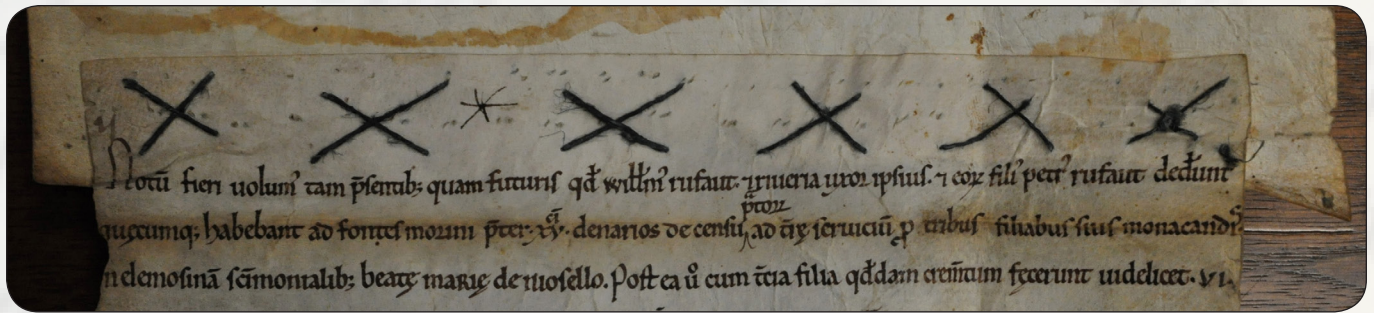 Notū fieri uolum᷒ tam p̄sentib; quam futuris qđ willm᷒ rufaut. ⁊ riueria uxor ipsius. ⁊ eoꝝ fili᷒ petr᷒ rufaut dedunt
ptoꝝ
quęcumq; habebant ad fontes morini p̄ter .xv. denarios de censu ad tr̄ę seruiciū ꝓ tribus filiabus suis monacandis
demosinā sc̄imonialib; beatę marię de niosello. Post ea ū cum t̄cia filia qđdam crem̄tum fecerunt uidelicet .vi.